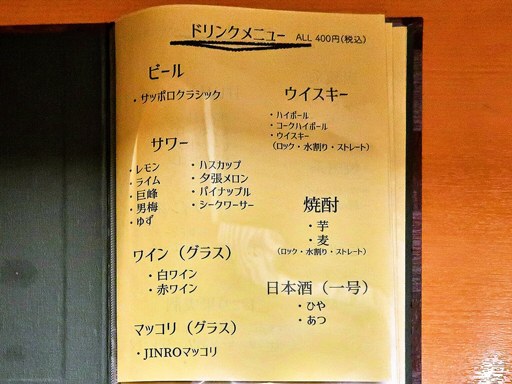 ドリンクメニュー ALL 400円(税込)
ビール
・サッポロクラシック
サワー
・レモン
・ライム
・巨峰
・男梅
・ゆず
・ハスカップ
・夕張メロン
・パイナップル
・シークワーサー
ワイン（グラス）
・白ワイン
・赤ワイン
マッコリ（グラス）
・JINROマッコリ
ウイスキー
・ハイボール
・コークハイボール
・ウイスキー
（ロック・水割り・ストレート）
焼酎
・芋
・麦
（ロック・水割り・ストレート）
日本酒（一号）
・ひや
・あつ